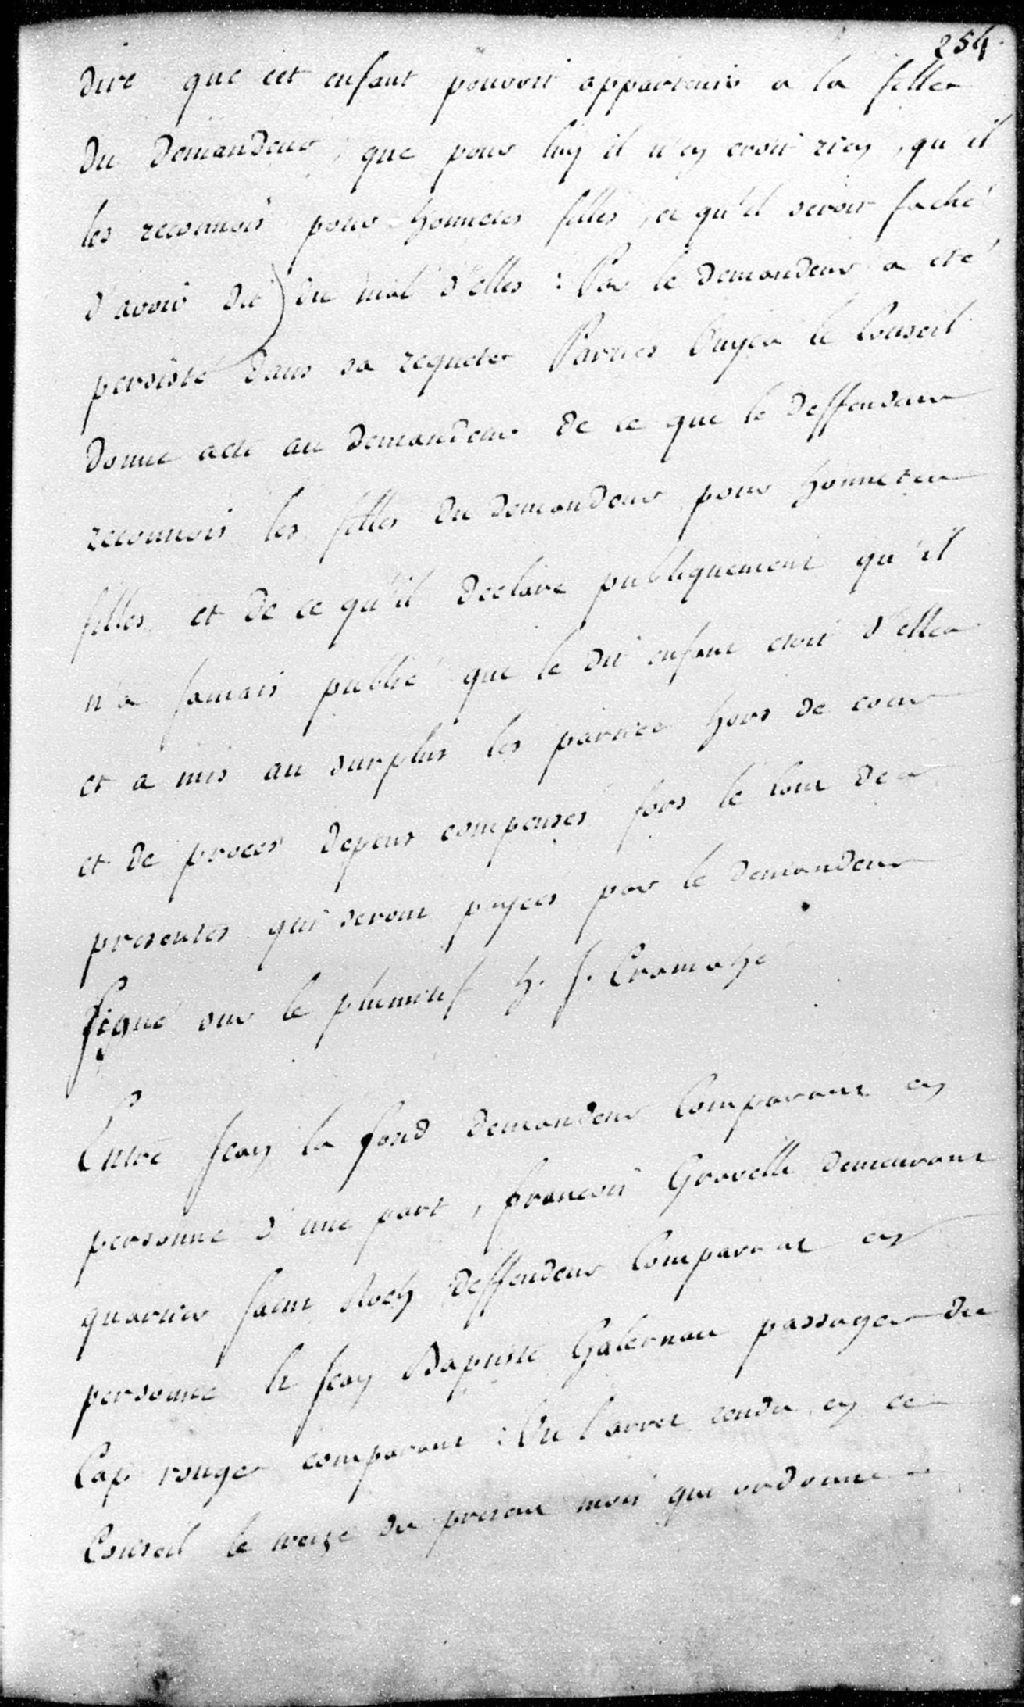 254.
dire que cet enfant pouvoit appartenir a la fille
du demandeur, que pour luy il n'en croit rien, qu'il
les reconnois pour honnetes filles, et qu'il seroit faché
d'avoir dit du mal d'elles : Par le demandeur a eté
persisté dans sa requete Parties ouyes le Conseil
donne acte au demandeur de ce que le deffendeur
reconnois les filles du demandeur pour honnetes
filles et de ce qu'il declare publiquement qu'il
n'a jamais publié que le dit enfant etoit d'elles
et a mis au surplus les parties hors de cour
et de procès depens compensés fors le cout des
presentes qui seront payees par le demandeur
signé sur le plumitif h. J. Cramahé
Entre Jean la fond demandeur Comparant en
personne d'une part, francois Gravelle demeurant
quartier Saint Roch deffendeur Comparant en
personne Et Jean Baptiste Galernau passager du
Cap rouge comparant : Vu l'arret rendu en ce
Conseil le treize du present mois qui ordonne